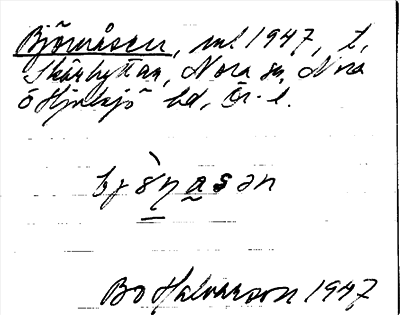 Björnåsen, ml 1947, t,
Skärhyttan, Nora sn, Nora
o Hjulsjö bd, Ör. l.
bj ò̱ŋa̰sən
Bo Halvarson 1947